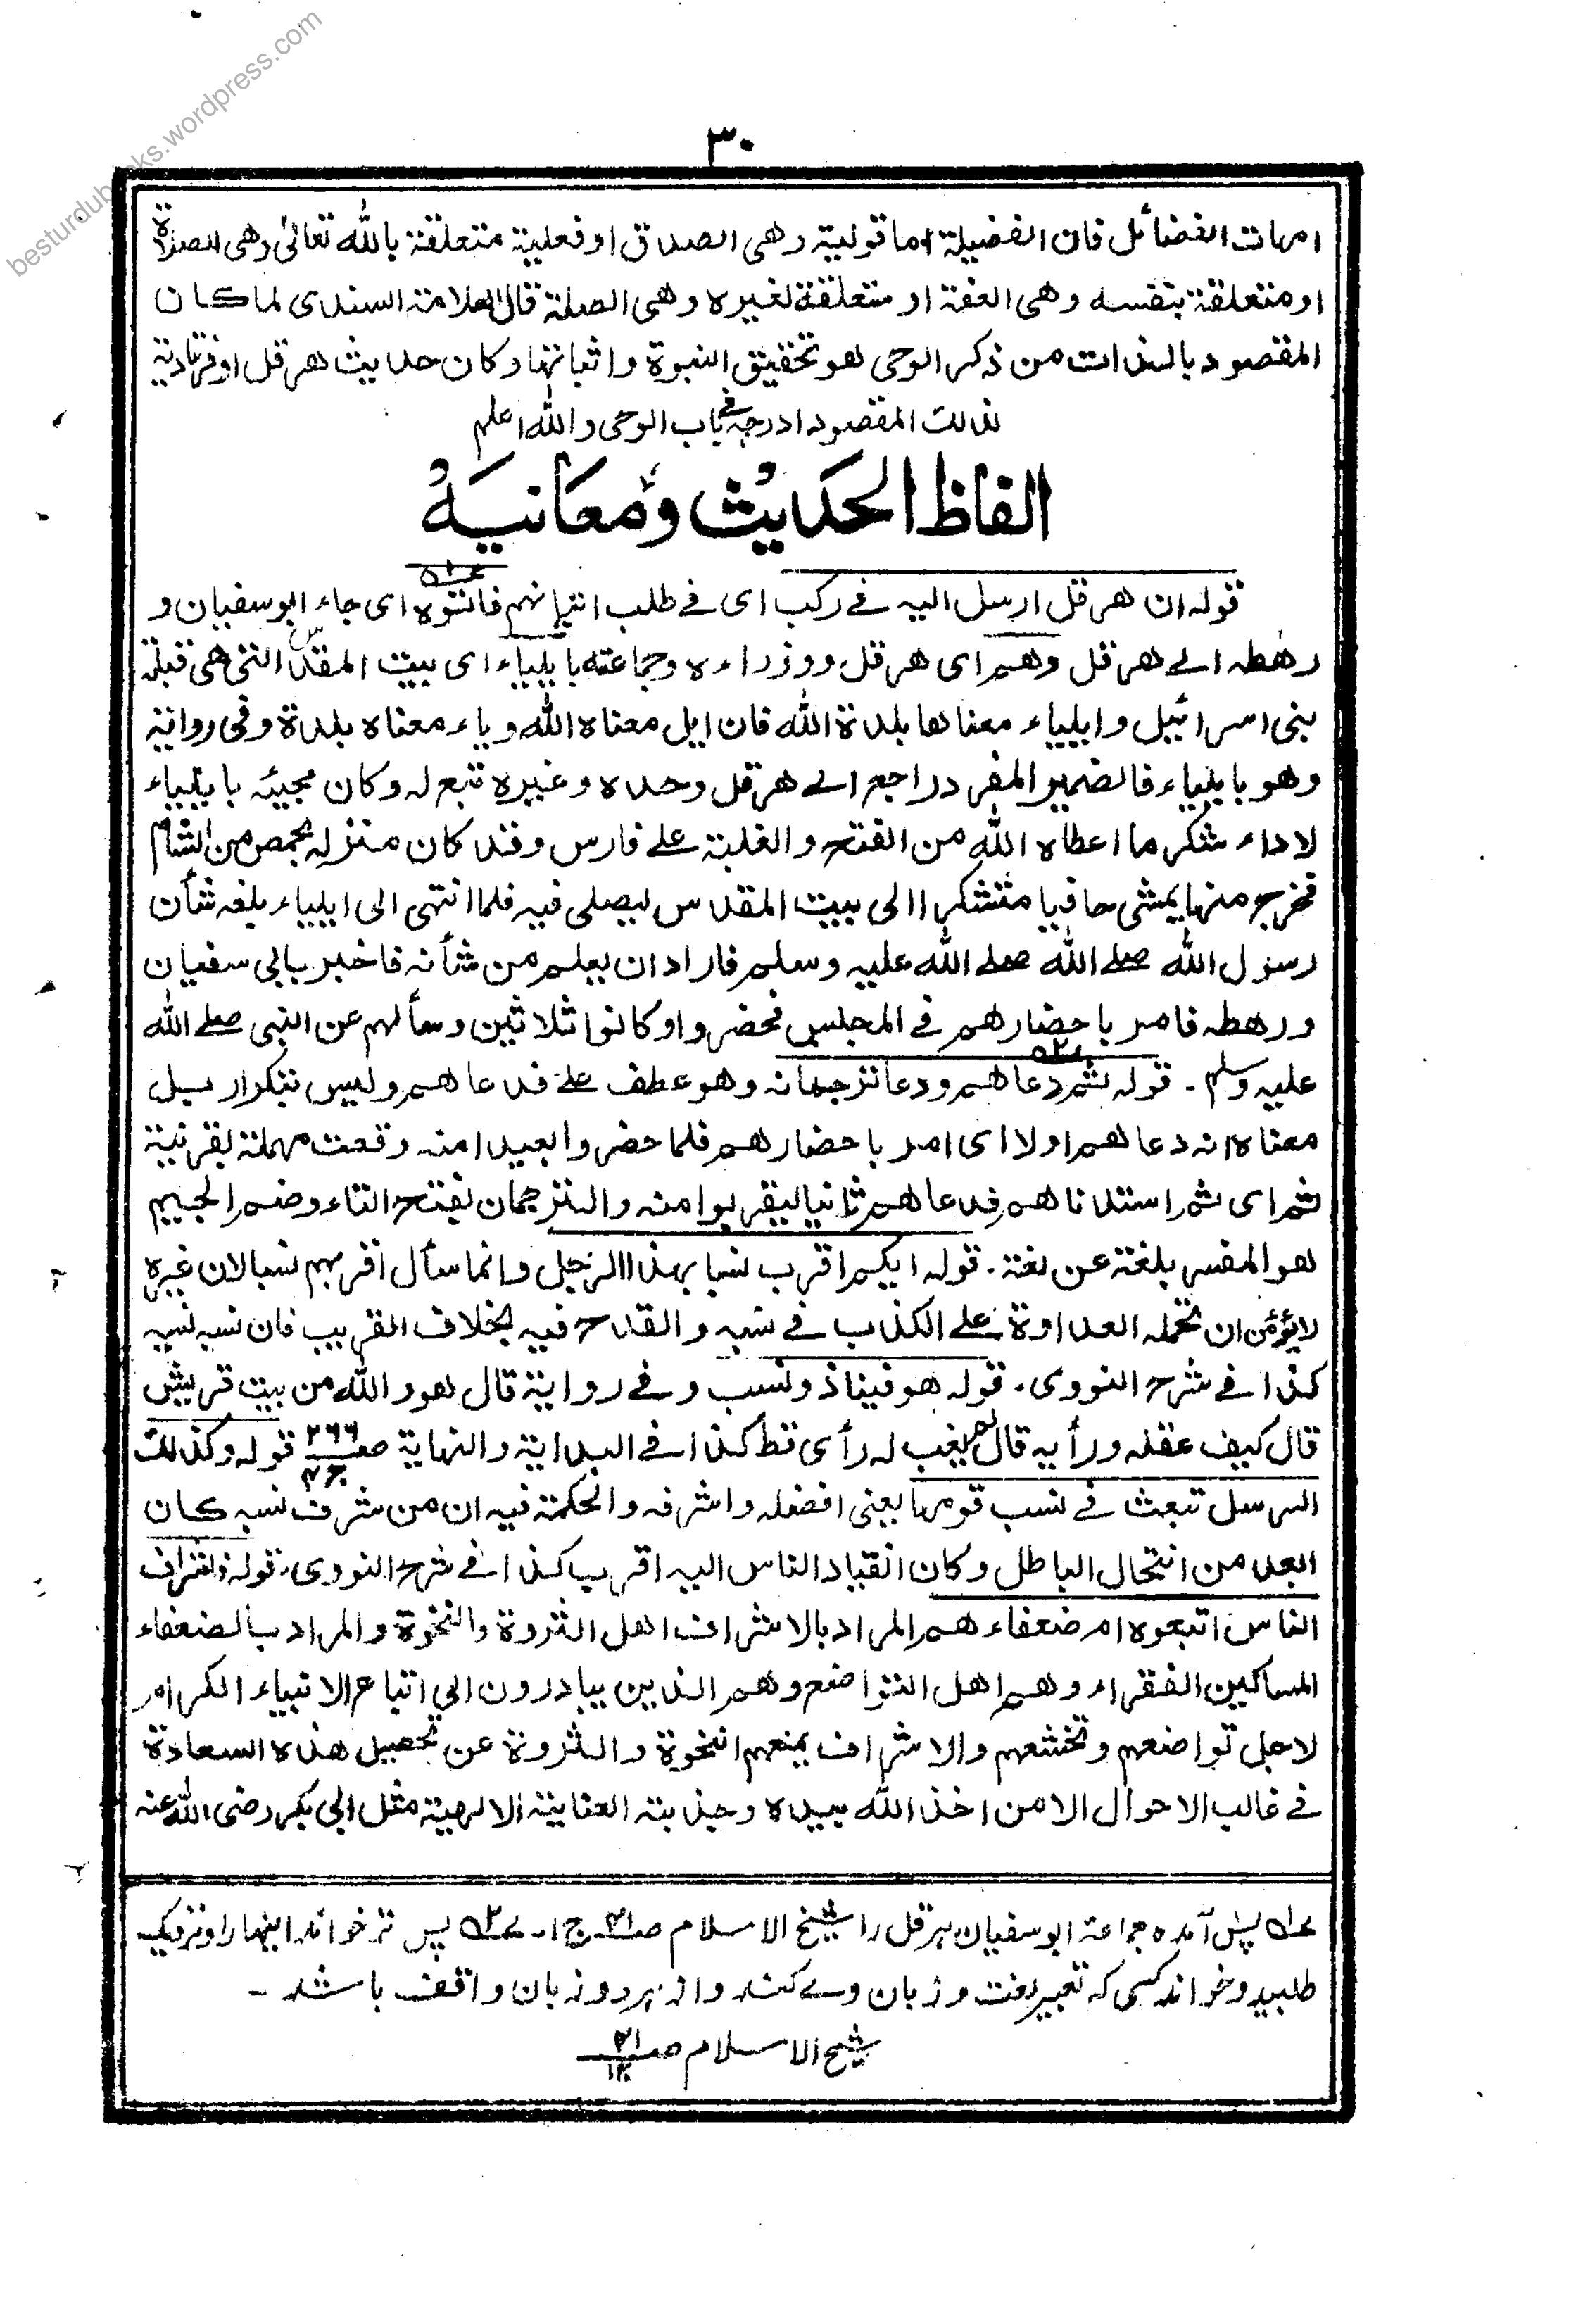 besturdubooks.wordpress.com
٣٠
امهات الفضائل فان الفضيلة اما قولية وهى الصدق او فعلية متعلقة بالله تعالىٰ وهى الصلاة
او متعلقة بنفسه وهى العفة او متعلقة لغيره وهى الصلة قال العلامة السندى لما كان
المقصود بالذات من ذكر الوحى هو تحقيق النبوة واثباتها وكان حديث هرقل اوفر تادية
لذلك المقصود ادرجه فے باب الوحى والله اعلم
الفاظ الحديث ومعانيه
قوله ان هرقل ارسل اليه فے ركب اى فے طلب اتيانهم فاتوه اى جاء ابو سفيان و
رهطه الے هرقل وهم اى هرقل ووزراءه وجماعته بايلياء اى بيت المقدس التى هى قبلة
بنى اسرائيل وايلياء معناها بلدة الله فان ايل معناه الله وياء معناه بلدة وفى رواية
وهو بايلياء فالضمير المفرد راجع الے هرقل وحده وغيره تبع له وكان مجيئه بايلياء
لاداء شكر ما اعطاه الله من الفتح والغلبة علے فارس وقد كان منزله بحمص من الشام
فخرج منها يمشى حافيا متشكرا الى بيت المقدس ليصلى فيه فلما انتهى الى ايلياء بلغه شأن
رسول الله صلے الله صلے الله عليه وسلم فاراد ان يعلم من شأنه فاخبر بابى سفيان
ورهطه فامر باحضارهم فے المجلس فحضروا وكانوا ثلاثين وسألهم عن النبى صلے الله
عليه وسلم ـ قوله ثم دعاهم ودعا ترجمانه وهو عطف علے فدعاهم وليس بتكرار بل
معناه انه دعاهم اولا اى امر باحضارهم فلما حضروا بعيدا منه وقعت مهملة بقرنية
ثم اى ثم استدناهم فدعاهم ثانيا ليقربوا منه والترجمان بفتح التاء وضم الجيم
هو المفسر بلغة عن لغة ـ قوله ايكم اقرب نسبا بهذا الرجل وانما سأل اقربهم نسبا لان غيره
لايؤمن ان تحمله العداوة علے الكذب فے نسبه والقدح فيه بخلاف القريب فان نسبه نسبه
كذا فے شرح النووى ـ قوله هو فينا ذو نسب وفے رواية قال هو والله من بيت قريش
قال كيف عقله ورأيه قال لم يغب له رأى قط كذا فے البداية والنهاية صـ ٢٦٦ ج ٤ قوله وكذلك
الرسل تبعث فے نسب قومها يعنى افضله واشرفه والحكمة فيه ان من شرف نسبه كان
ابعد من انتحال الباطل وكان انقياد الناس اليه اقرب كذا فے شرح النووى ـ قوله فاشراف
الناس اتبعوه ام ضعفاءهم المراد بالاشراف اهل الثروة والنخوة والمراد بالضعفاء
المساكين الفقراء وهم اهل التواضع وهم الذين يبادرون الى اتباع الانبياء الكرام
لاجل تواضعهم وتخشعهم والاشراف يمنعهم النخوة والثروة عن تحصيل هذه السعادة
فے غالب الاحوال الا من اخذ الله بيده وجذبته العناية الالهية مثل ابى بكر رضى الله عنه
١ه پس آمدہ جماعۃ ابو سفیان ہرقل را شیخ الاسلام صـ٣١ ج ١ـ ٢ه پس تر خواند اینہا را ونزدیک
طلبید وخواند کسی کہ تعبیر لغت وزبان وے کند واز ہر دو زبان واقف باشد ـ
شیخ الاسلام صـ ٣١